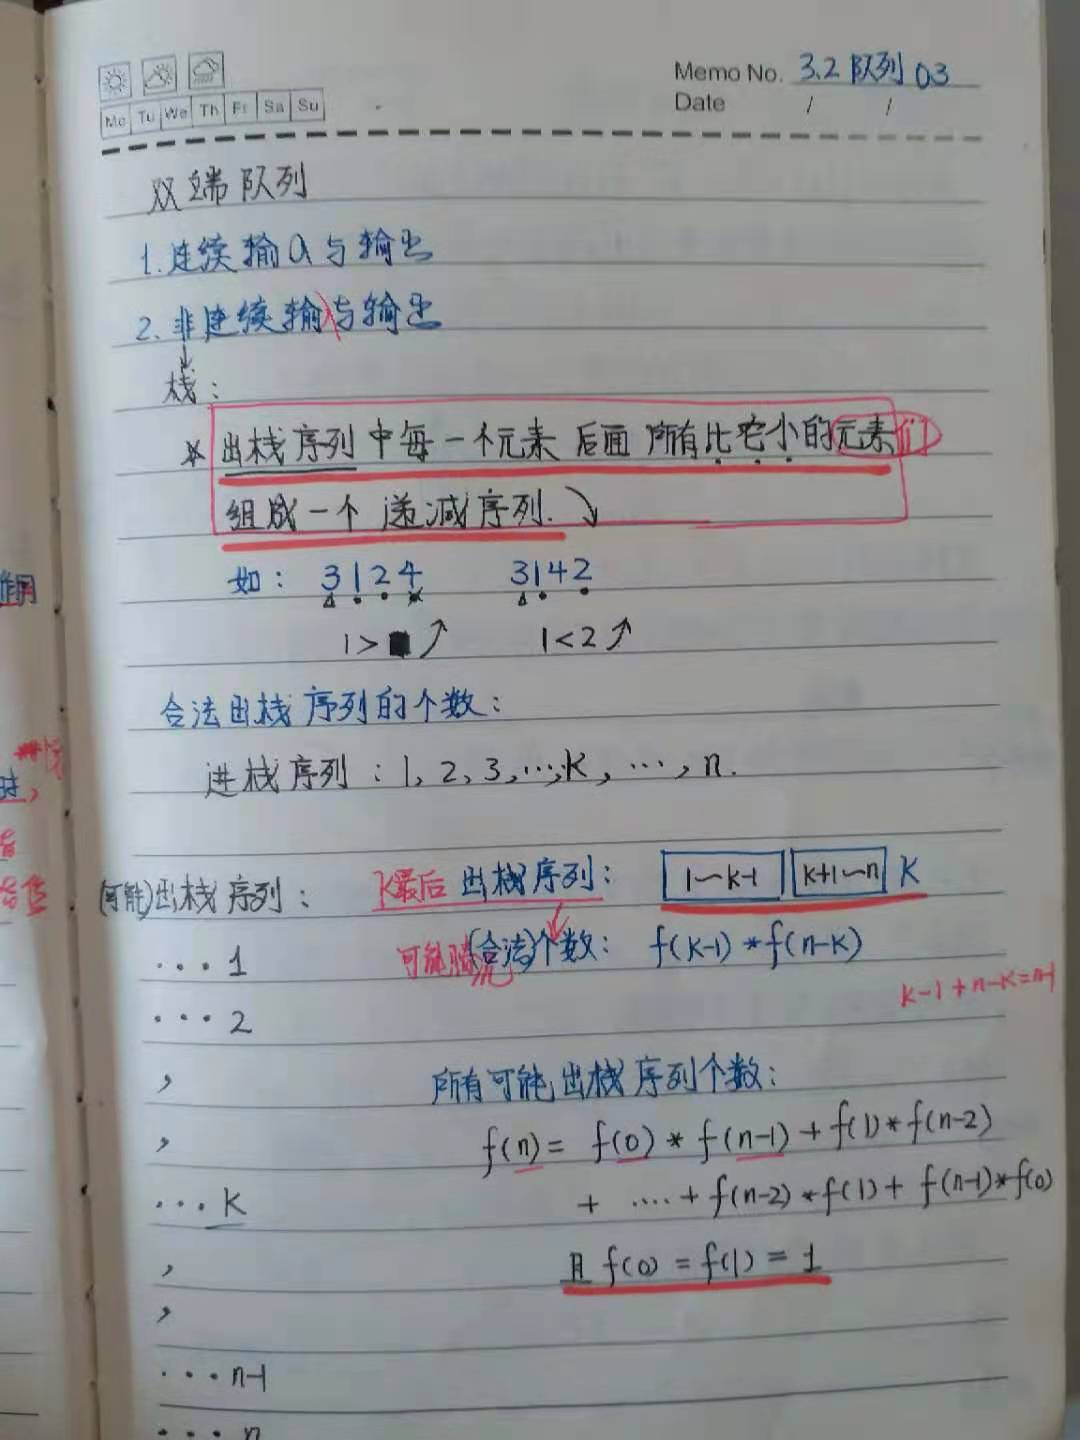 Memo No. 3.2 队列 03
Mo Tu We Th Fr Sa Su
Date / /
双端队列
1.连续输入与输出
2.非连续输入与输出
栈:
* 出栈序列中每一个元素后面所有比它小的元素们
组成一个递减序列.
如: 3124 3142
1> 1<2
合法出栈序列的个数:
进栈序列:1,2,3,…,k,…,n.
(可能)出栈序列: K最后出栈序列: 1~k-1 k+1~n K
···1 可能 (合法)个数: f(k-1)*f(n-k)
k-1+n-k=n-1
···2
, 所有可能出栈序列个数:
, f(n)= f(0)*f(n-1)+f(1)*f(n-2)
···K + ····+f(n-2)*f(1)+f(n-1)*f(0)
, 且f(0)=f(1)=1
,
···n-1
···n